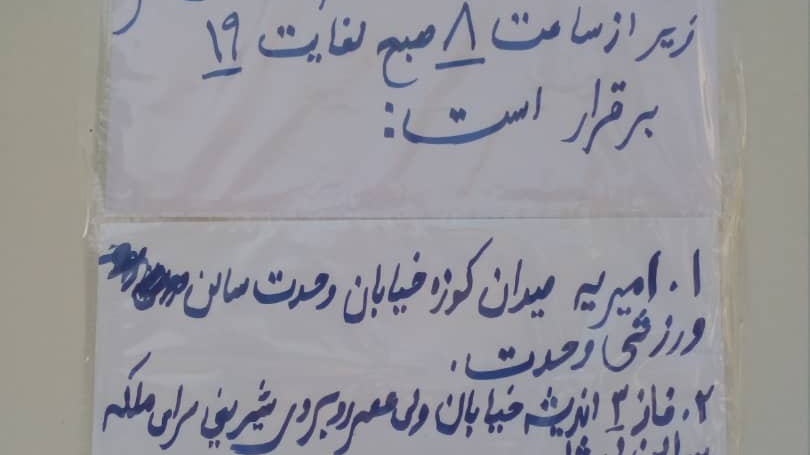 زیر از ساعت ۸ صبح لغایت ۱۹
برقرار است:
۱. امیریه میدان کوزه خیابان وحدت سالن
ورزشی وحدت.
۲. فاز ۳ اندیشه خیابان ولی عصر روبروی شیرینی سرای ملکه